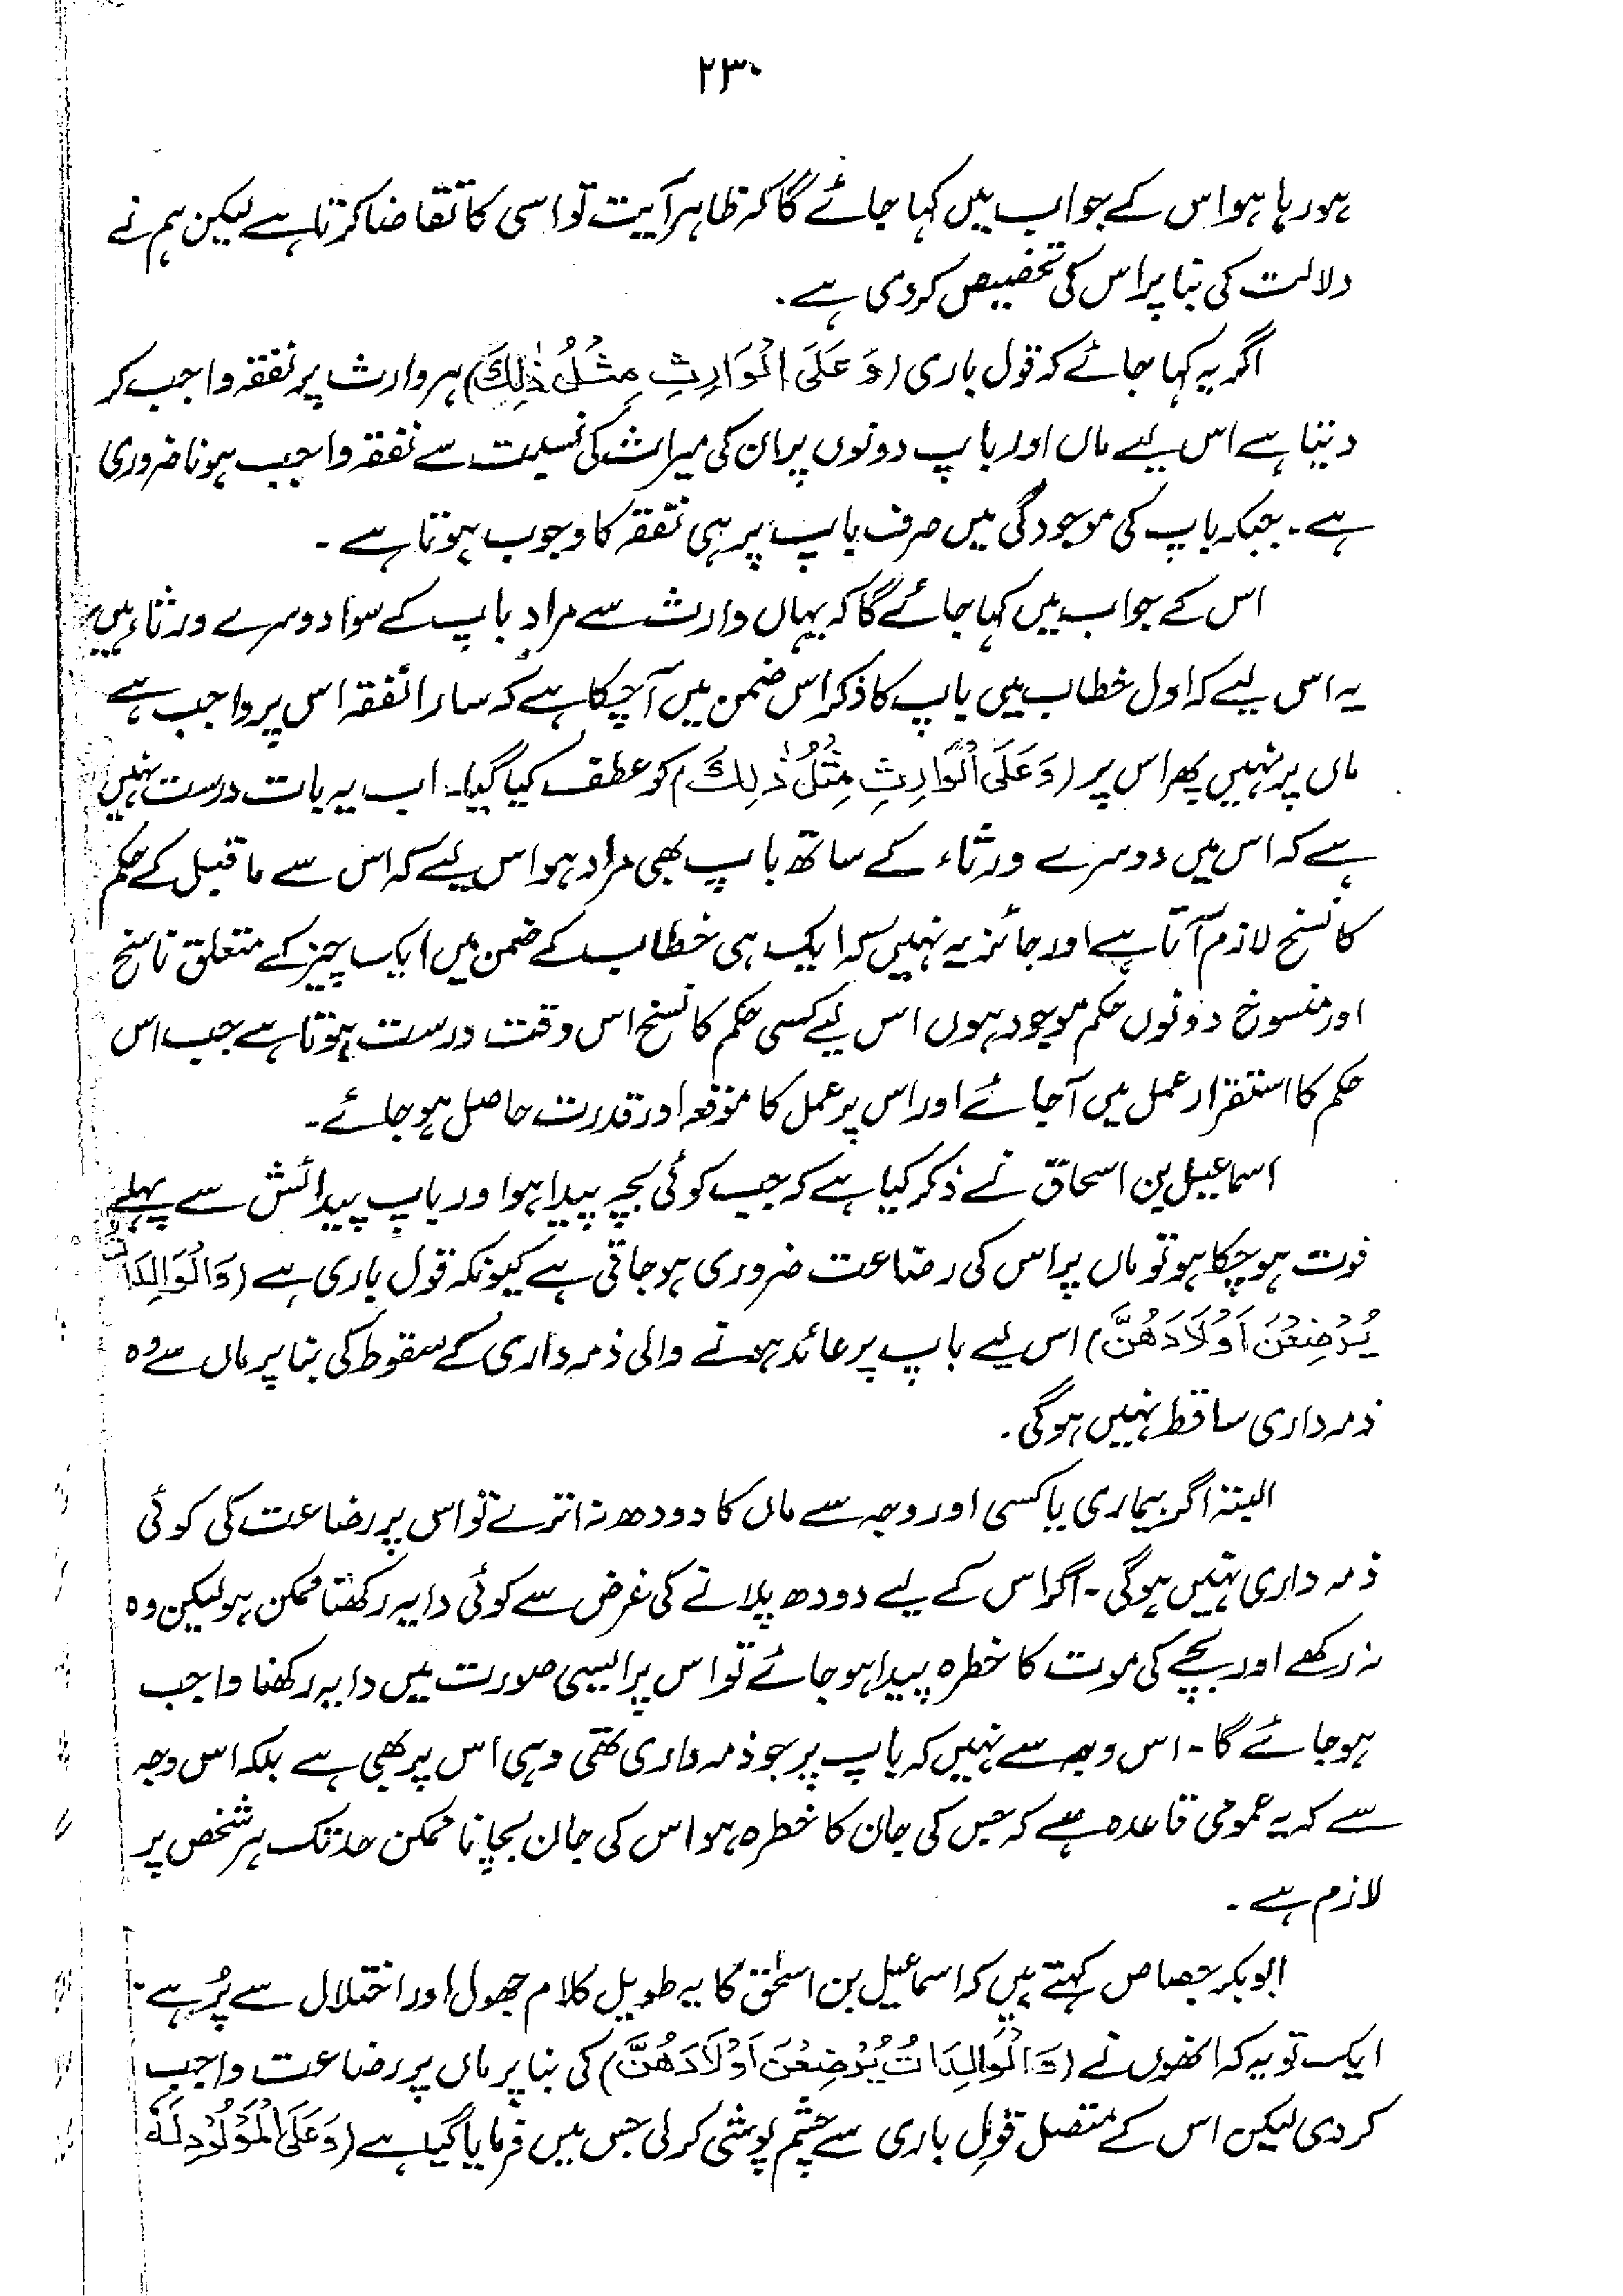 ۲۳۰
ہو رہا ہو اس کے جواب میں کہا جائے گا کہ ظاہر آیت تو اسی کا تقاضا کرتا ہے لیکن ہم نے
دلالت کی بنا پر اس کی تخصیص کردی ہے۔
اگر یہ کہا جائے کہ قول باری (وَ عَلَی الْوَارِثِ مِثْلُ ذٰلِکَ) ہر وارث پر نفقہ واجب کر
دیتا ہے اس لیے ماں اور باپ دونوں پر ان کی میراث کی نسبت سے نفقہ واجب ہونا ضروری
ہے۔ جبکہ باپ کی موجودگی میں صرف باپ پر ہی نفقہ کا وجوب ہوتا ہے۔
اس کے جواب میں کہا جائے گا کہ یہاں وارث سے مراد باپ کے سوا دوسرے ورثاء ہیں
یہ اس لیے کہ اول خطاب میں باپ کا ذکر اس ضمن میں آچکا ہے کہ سارا نفقہ اس پر واجب ہے
ماں پر نہیں پھر اس پر (وَعَلَی الْوَارِثِ مِثْلُ ذٰلِکَ) کو عطف کیا گیا۔ اب یہ بات درست نہیں
ہے کہ اس میں دوسرے ورثاء کے ساتھ باپ بھی مراد ہو اس لیے کہ اس سے ماقبل کے حکم
کا نسخ لازم آتا ہے اور جائز یہ نہیں کہ ایک ہی خطاب کے ضمن میں ایک چیز کے متعلق ناسخ
اور منسوخ دونوں حکم موجود ہوں اس لیے کسی حکم کا نسخ اس وقت درست ہوتا ہے جب اس
حکم کا استقرار عمل میں آجائے اور اس پر عمل کا موقعہ اور قدرت حاصل ہو جائے۔
اسماعیل بن اسحاق نے ذکر کیا ہے کہ جب کوئی بچہ پیدا ہو اور باپ پیدائش سے پہلے
فوت ہو چکا ہو تو ماں پر اس کی رضاعت ضروری ہو جاتی ہے کیونکہ قول باری ہے (وَالْوَالِدَاتُ
یُرْضِعْنَ اَوْلَادَھُنَّ) اس لیے باپ پر عائد ہونے والی ذمہ داری کے سقوط کی بنا پر ماں سے وہ
ذمہ داری ساقط نہیں ہوگی۔
البتہ اگر بیماری یا کسی اور وجہ سے ماں کا دودھ نہ اترے تو اس پر رضاعت کی کوئی
ذمہ داری نہیں ہوگی۔ اگر اس کے لیے دودھ پلانے کی غرض سے کوئی دایہ رکھنا ممکن ہو لیکن وہ
نہ رکھے اور بچے کی موت کا خطرہ پیدا ہو جائے تو اس پر ایسی صورت میں دایہ رکھنا واجب
ہو جائے گا۔ اس وجہ سے نہیں کہ باپ پر جو ذمہ داری تھی وہی اس پر بھی ہے بلکہ اس وجہ
سے کہ یہ عمومی قاعدہ ہے کہ جس کی جان کا خطرہ ہو اس کی جان بچانا ممکن حد تک ہر شخص پر
لازم ہے۔
ابوبکر جصاص کہتے ہیں کہ اسماعیل بن اسحٰق کا یہ طویل کلام جھول اور اختلال سے پُر ہے۔
ایک تو یہ کہ انھوں نے (وَالْوَالِدَاتُ یُرْضِعْنَ اَوْلَادَھُنَّ) کی بنا پر ماں پر رضاعت واجب
کر دی لیکن اس کے متصل قولِ باری سے چشم پوشی کر لی جس میں فرمایا گیا ہے (وَعَلَی الْمَوْلُوْدِ لَہٗ